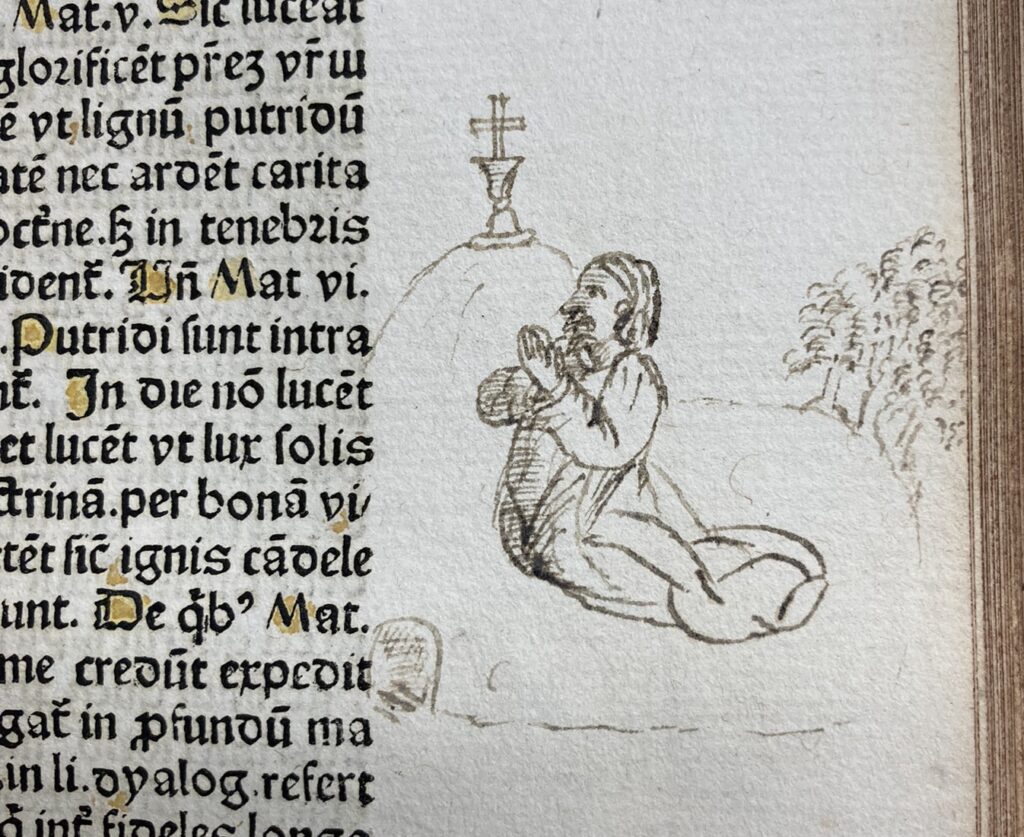 Mat.v. Sic luceat
glorificēt pr̄eʒ vr̄ɯ
ē vt lignū putridū
atē nec ardēt carita
octͬne.ẜʒ in tenebris
ident᷑. Vn̄ Mat vi.
.Putridi sunt intra
nt᷑. In die nō lucēt
et lucēt vt lux solis
ctrinā.per bonā vi/
ctēt sic̄ ignis cādele
unt. De q̄bꝰ Mat.
me credūt expedit
gat᷑ in ꝓfundū ma
.in li.dyalog.refert
int᷑ fideles longe